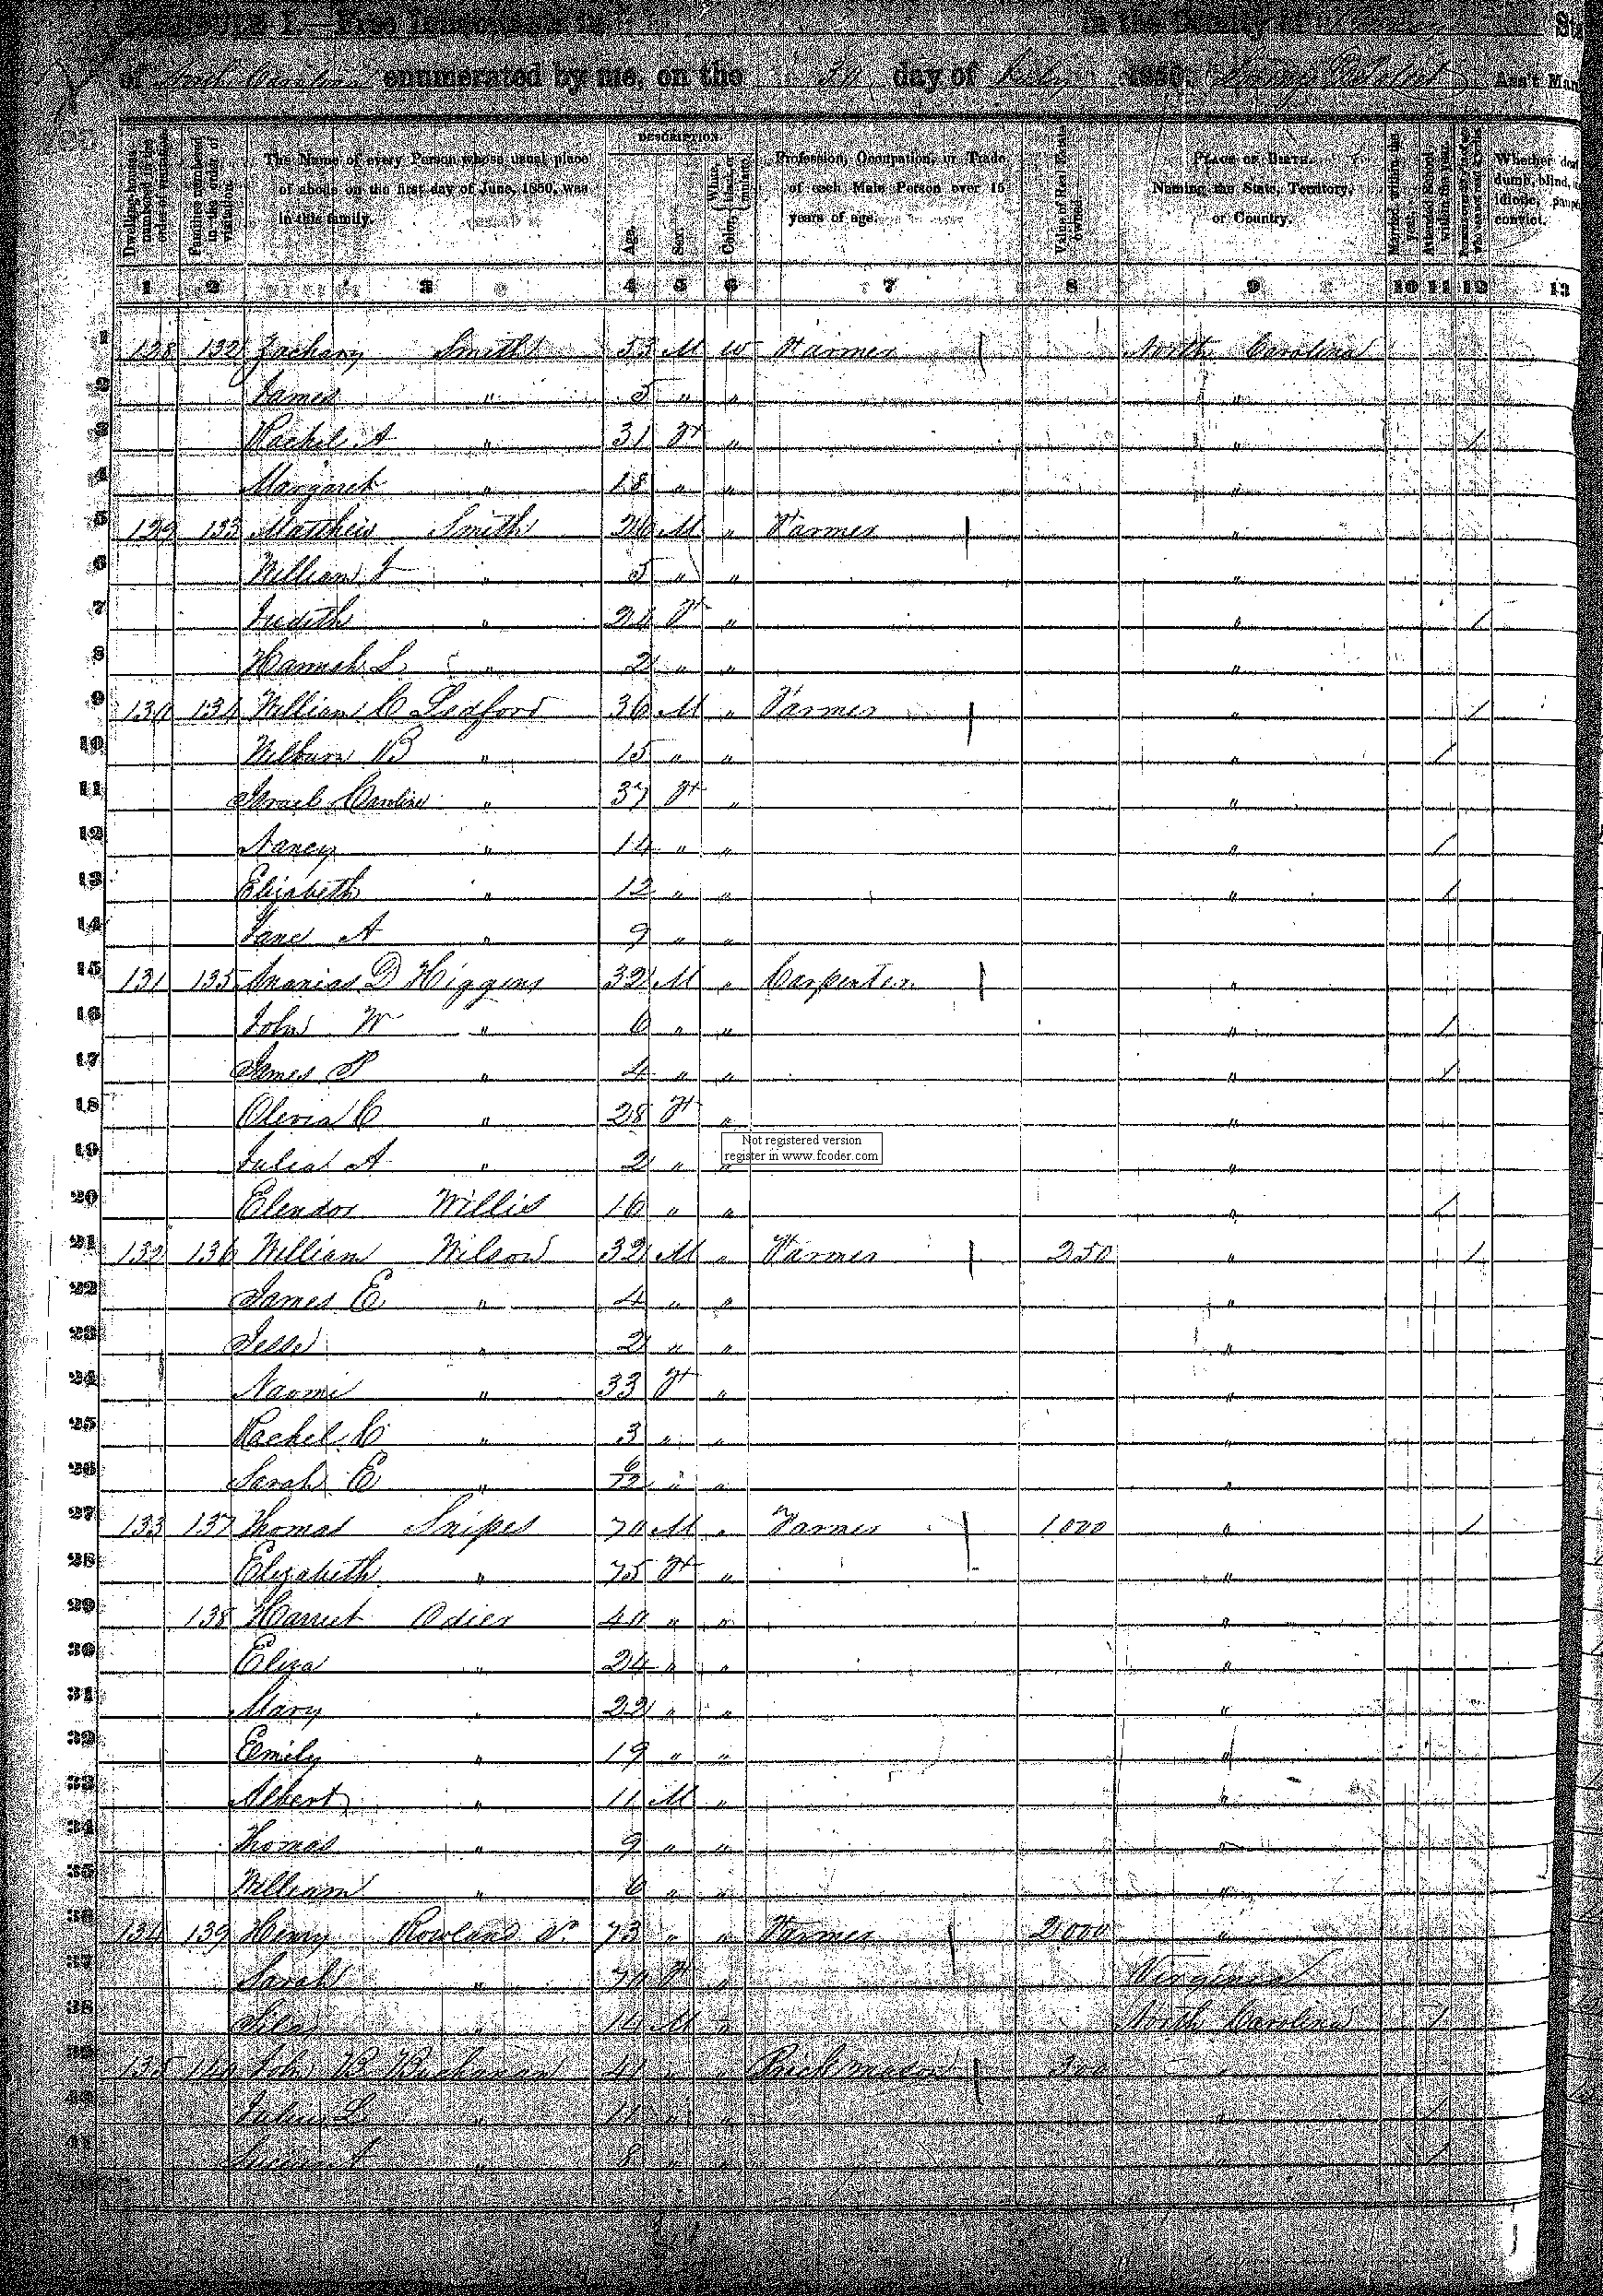 SCHEDULE I.—Free Inhabitants in in the County of Sta
of North Carolina enumerated by me, on the 30 day of July 1850. Ass't Mar
Dwelling-houses numbered in the order of visitation.
Families numbered in the order of visitation.
The Name of every Person whose usual place of abode on the first day of June, 1850, was in this family.
DESCRIPTION
Age.
Sex.
Color, White, black, or mulatto.
Profession, Occupation, or Trade of each Male Person over 15 years of age.
Value of Real Estate owned.
PLACE OF BIRTH. Naming the State, Territory, or Country.
Married within the year.
Attended School within the year.
Persons over 20 y'rs of age who cannot read & write.
Whether deaf, dumb, blind, idiotic, paup convict.
1 2 3 4 5 6 7 8 9 10 11 12 13
1 128 132 Zachary Smith 53 M W Farmer North Carolina
2 James " 5 " " "
3 Rachel A " 31 F " " 1
4 Margaret " 18 " " "
5 129 133 Matthew Smith 26 M " Farmer "
6 William J " 5 " " "
7 Judith " 24 F " " 1
8 Hannah L " 2 " " "
9 130 134 William C Ledford 36 M " Farmer " 1
10 Wilburn B " 15 " " " 1
11 Caroline " 37 F " "
12 Nancy " 14 " " " 1
13 Elizabeth " 12 " " " 1
14 Jane A " 9 " "
15 131 135 Ananias D Higgins 32 M " Carpenter "
16 John W " 6 " " " 1
17 James P " 4 " " " 1
18 Olevia C " 28 F " "
19 Julia A " 2 " " "
Not registered version
register in www.fcoder.com
20 Elendor Willis 16 " " " 1
21 132 136 William Wilson 32 M " Farmer 250 " 1
22 James E " 4 " " "
23 Jesse " 2 " " "
24 Naomi " 33 F " "
25 Rachel C " 3 " " "
26 Sarah E " 6/12 " " "
27 133 137 Thomas Snipes 70 M " Farmer 1000 " 1
28 Elizabeth " 75 F " "
29 138 Harriet Odier 40 " " "
30 Eliza " 24 " " "
31 Mary " 22 " " "
32 Emily " 19 " " "
33 Albert " 11 M " "
34 Thomas " 9 " " "
35 William " 6 " " "
36 134 139 Henry Rowland 73 " " Farmer 2000 "
37 Sarah " 70 F " Virginia
38 " 14 M " North Carolina 1
39 135 140 John B Buchanan 41 " " Brick mason 300 "
40 Julius L " 11 " " " 1
41 " 8 " " " 1